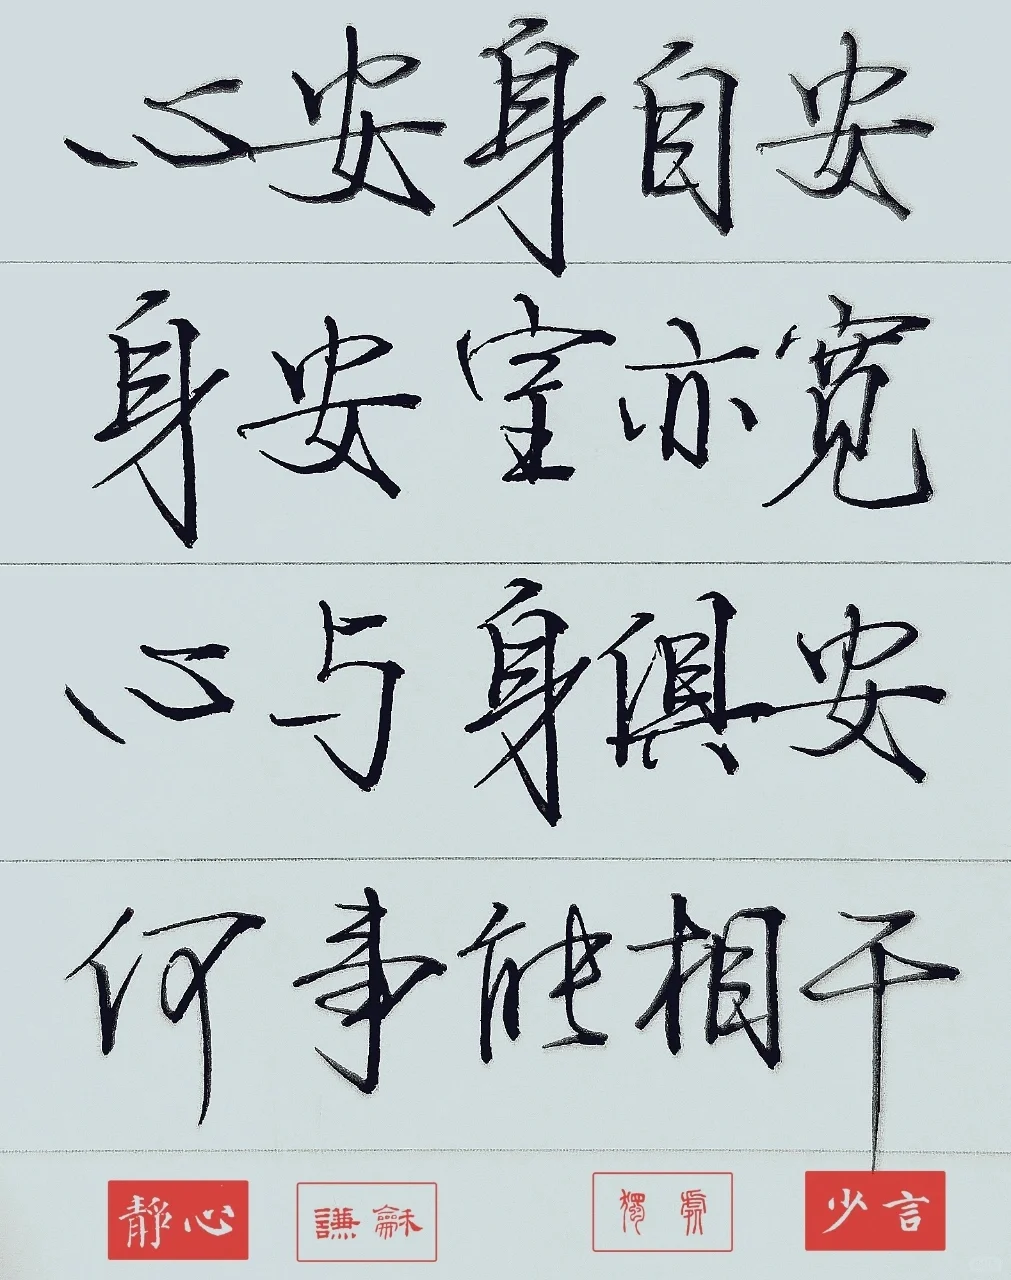 心安身自安
身安室亦宽
心与身俱安
何事能相干
靜心 謙龢 獨處 少言